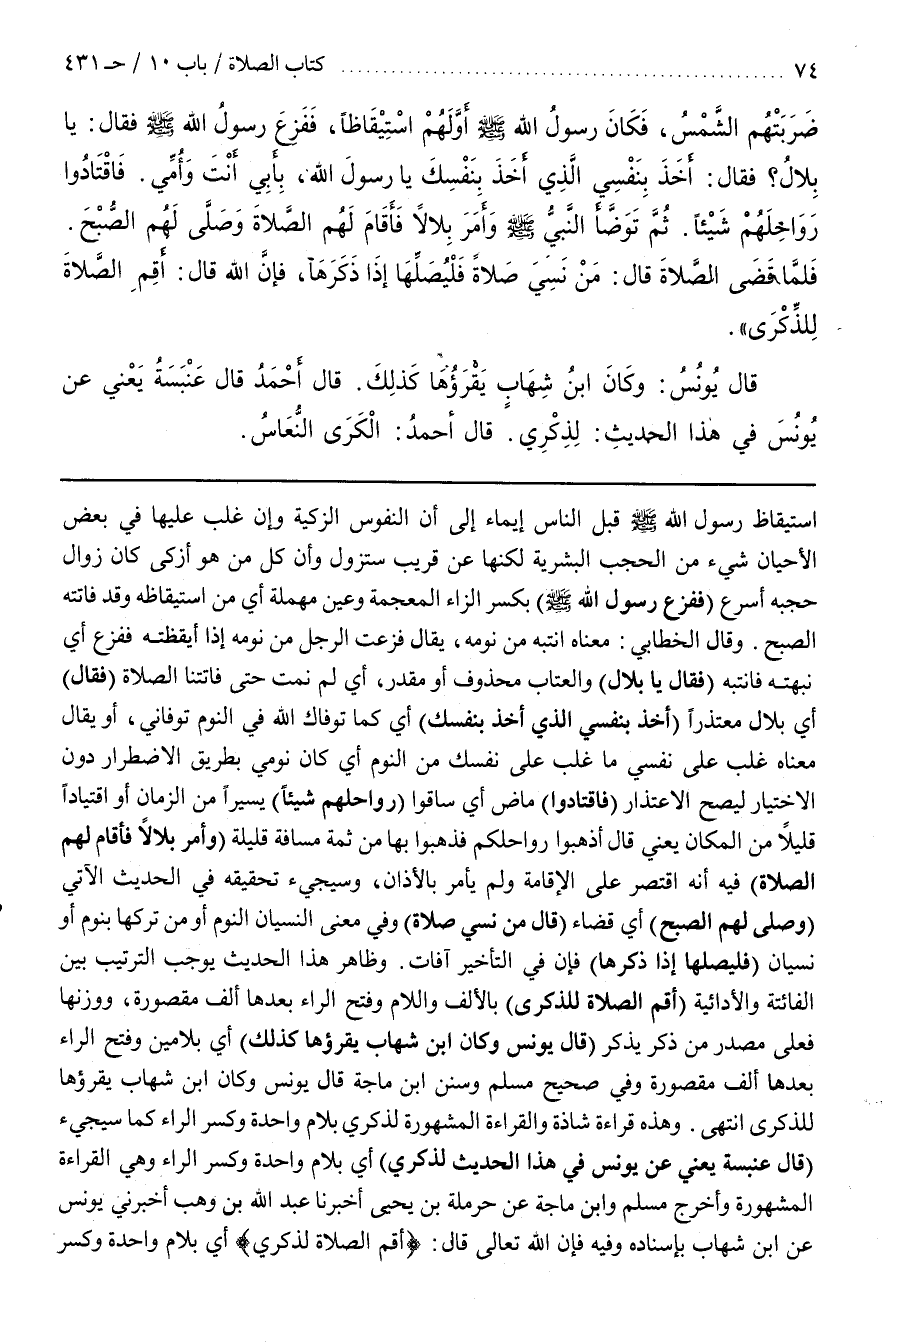 ٧٤ ........ كتاب الصلاة / باب ١٠ / حـ ٤٣١
ضَرَبَتْهُم الشَّمْسُ، فَكَانَ رسولُ الله ﷺ أَوَّلَهُمْ اسْتِيْقَاظاً، فَفَزِعَ رسولُ الله ﷺ فقال: يا
بِلالُ؟ فقال: أَخَذَ بِنَفْسِي الَّذِي أَخَذَ بِنَفْسِكَ يا رسولَ الله، بِأَبِي أَنْتَ وَأُمِّي. فَاقْتَادُوا
رَوَاحِلَهُمْ شَيْئاً. ثُمَّ تَوَضَّأَ النَّبِيُّ ﷺ وَأَمَرَ بِلالًا فَأَقَامَ لَهُم الصَّلاةَ وَصَلَّى لَهُم الصُّبْحَ.
فَلمَّا قَضَى الصَّلاةَ قال: مَنْ نَسِيَ صَلاةً فَلْيُصَلِّهَا إِذَا ذَكَرَهَا، فإنَّ الله قال: أَقِم الصَّلاةَ
لِلذِّكْرَى».
قال يُونُسُ: وكَانَ ابنُ شِهَابٍ يَقْرَؤُهَا كَذلِكَ. قال أَحْمَدُ قال عَنْبَسَةُ يَعْني عن
يُونُسَ في هذا الحديثِ: لِذِكْرِي. قال أحمدُ: الْكَرَى النُّعَاسُ.
استيقاظ رسول الله ﷺ قبل الناس إيماء إلى أن النفوس الزكية وإن غلب عليها في بعض
الأحيان شيء من الحجب البشرية لكنها عن قريب ستزول وأن كل من هو أزكى كان زوال
حجبه أسرع (ففزع رسول الله ﷺ) بكسر الزاء المعجمة وعين مهملة أي من استيقاظه وقد فاتته
الصبح. وقال الخطابي: معناه انتبه من نومه، يقال فزعت الرجل من نومه إذا أيقظته ففزع أي
نبهته فانتبه (فقال يا بلال) والعتاب محذوف أو مقدر، أي لم نمت حتى فاتتنا الصلاة (فقال)
أي بلال معتذراً (أخذ بنفسي الذي أخذ بنفسك) أي كما توفاك الله في النوم توفاني، أو يقال
معناه غلب على نفسي ما غلب على نفسك من النوم أي كان نومي بطريق الاضطرار دون
الاختيار ليصح الاعتذار (فاقتادوا) ماض أي ساقوا (رواحلهم شيئاً) يسيراً من الزمان أو اقتياداً
قليلاً من المكان يعني قال أذهبوا رواحلكم فذهبوا بها من ثمة مسافة قليلة (وأمر بلالاً فأقام لهم
الصلاة) فيه أنه اقتصر على الإقامة ولم يأمر بالأذان، وسيجيء تحقيقه في الحديث الآتي
(وصلى لهم الصبح) أي قضاء (قال من نسي صلاة) وفي معنى النسيان النوم أو من تركها بنوم أو
نسيان (فليصلها إذا ذكرها) فإن في التأخير آفات. وظاهر هذا الحديث يوجب الترتيب بين
الفائتة والأدائية (أقم الصلاة للذكرى) بالألف واللام وفتح الراء بعدها ألف مقصورة، ووزنها
فعلى مصدر من ذكر يذكر (قال يونس وكان ابن شهاب يقرؤها كذلك) أي بلامين وفتح الراء
بعدها ألف مقصورة وفي صحيح مسلم وسنن ابن ماجة قال يونس وكان ابن شهاب يقرؤها
للذكرى انتهى. وهذه قراءة شاذة والقراءة المشهورة لذكري بلام واحدة وكسر الراء كما سيجيء
(قال عنبسة يعني عن يونس في هذا الحديث لذكري) أي بلام واحدة وكسر الراء وهي القراءة
المشهورة وأخرج مسلم وابن ماجة عن حرملة بن يحيى أخبرنا عبد الله بن وهب أخبرني يونس
عن ابن شهاب بإسناده وفيه فإن الله تعالى قال: ﴿أقم الصلاة لذكري﴾ أي بلام واحدة وكسر